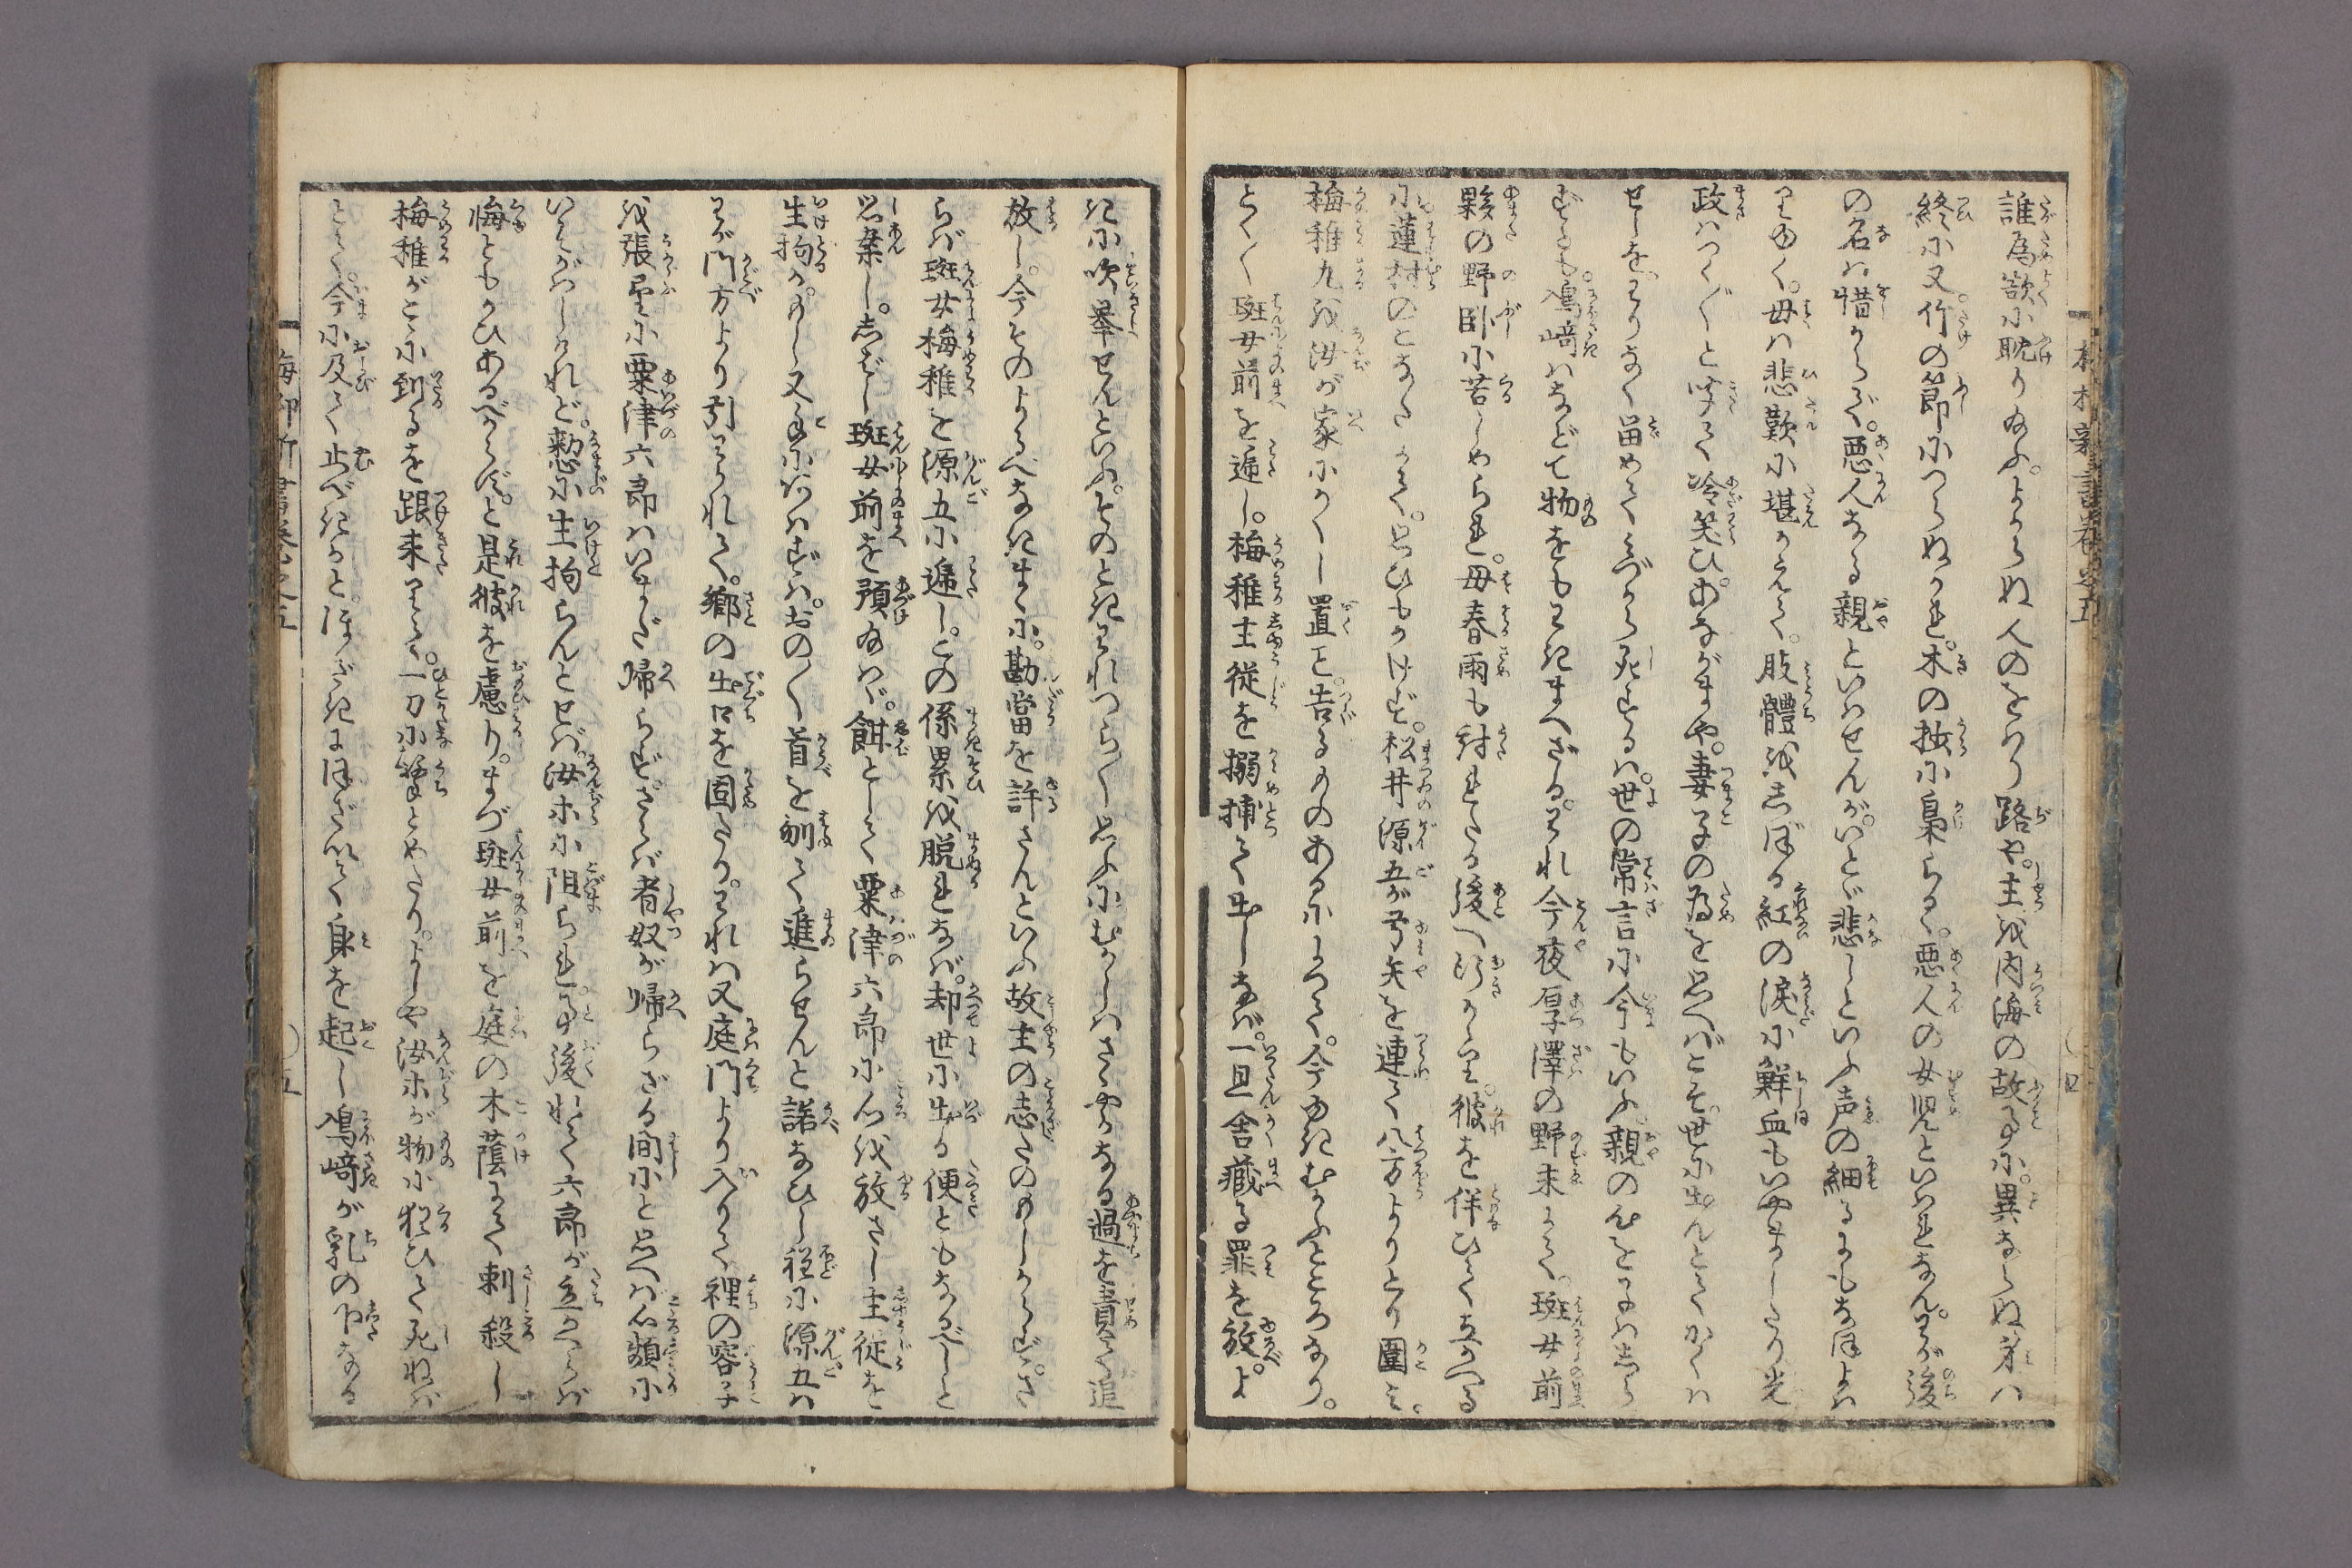 誰為欲に耽り給ふ。よからぬ人のをはり路や。主を内海の故事に。異ならぬ身は
終に又。竹の節につらぬかれ。木の枝に梟らる。悪人の女児といはれなん。わが後
の名は惜からず。悪人なる親といはせんが。いとゞ悲しといふ声の細るにもなほよは
りゆく。母は悲歎に堪かねて。肢體をしぼる紅の涙に鮮血もいやましたり光
政はつく〴〵と聞て冷笑ひ。あながまや。妻子の為を思へばこそ。世に出んとてかくは
せしを。わりなく留めてみづから死するは。世の常言に今もいふ。親の心を子はしら
ずとも。鳰崎はなどて物をもわきまへざる。われ今夜厚澤の野末にて。斑女前
夥の野臥に苦しめられ。母春雨も討れたる後へ行かゝり。彼を伴ひて立かへる
に。蓮村のこなたにて。思ひもかけず。松井源五が弓矢を連て八方よりとり圍み。
梅稚丸を汝が家にかくし置と。告るものあるによつて。今ゆきむかふところなり。
とく〳〵斑女前を逓し。梅稚主従を搦捕て出しなば。一旦舎蔵る罪を放。よ
きに吹挙せんといふ。そのときわれつら〳〵思ふにむかしはさゝやかなる過を責て追
放し。今そのよるべなきまゝに。勘當を許さんといふ故主の志たのもしからず。さ
らば斑女梅稚を源五に逓し。この係累を脱れなば。却世に出る便ともなるべしと
思案し。しばし斑女前を預給はゞ。餌として粟津六郎に心を放さし主従を
生拘か。もし又手にあはずは。おの〳〵首を刎て進らせんと諾なひし程に源五は
わが門方より引わかれて。郷の出口を固たり。われは又庭門より入りて。裡の容子
を張望に粟津六郎はいまだ帰らず。さらば者奴が帰らざる間にと思へば心頻に
いそがはしけれど。憖に生拘らんとせば。汝等に阻られ。事後れて六郎が立かへらば
悔ともかひあるべからず。と是彼を慮り。まづ斑女前を庭の木蔭にて刺殺し
梅稚がこゝに到るを跟来りて。一刀に撃とめたり。よしや汝等が物に狂ひて死ねば
とて。今に及て止べきかと。ほざきにほざいて身を起し鳰崎が乳の下なる